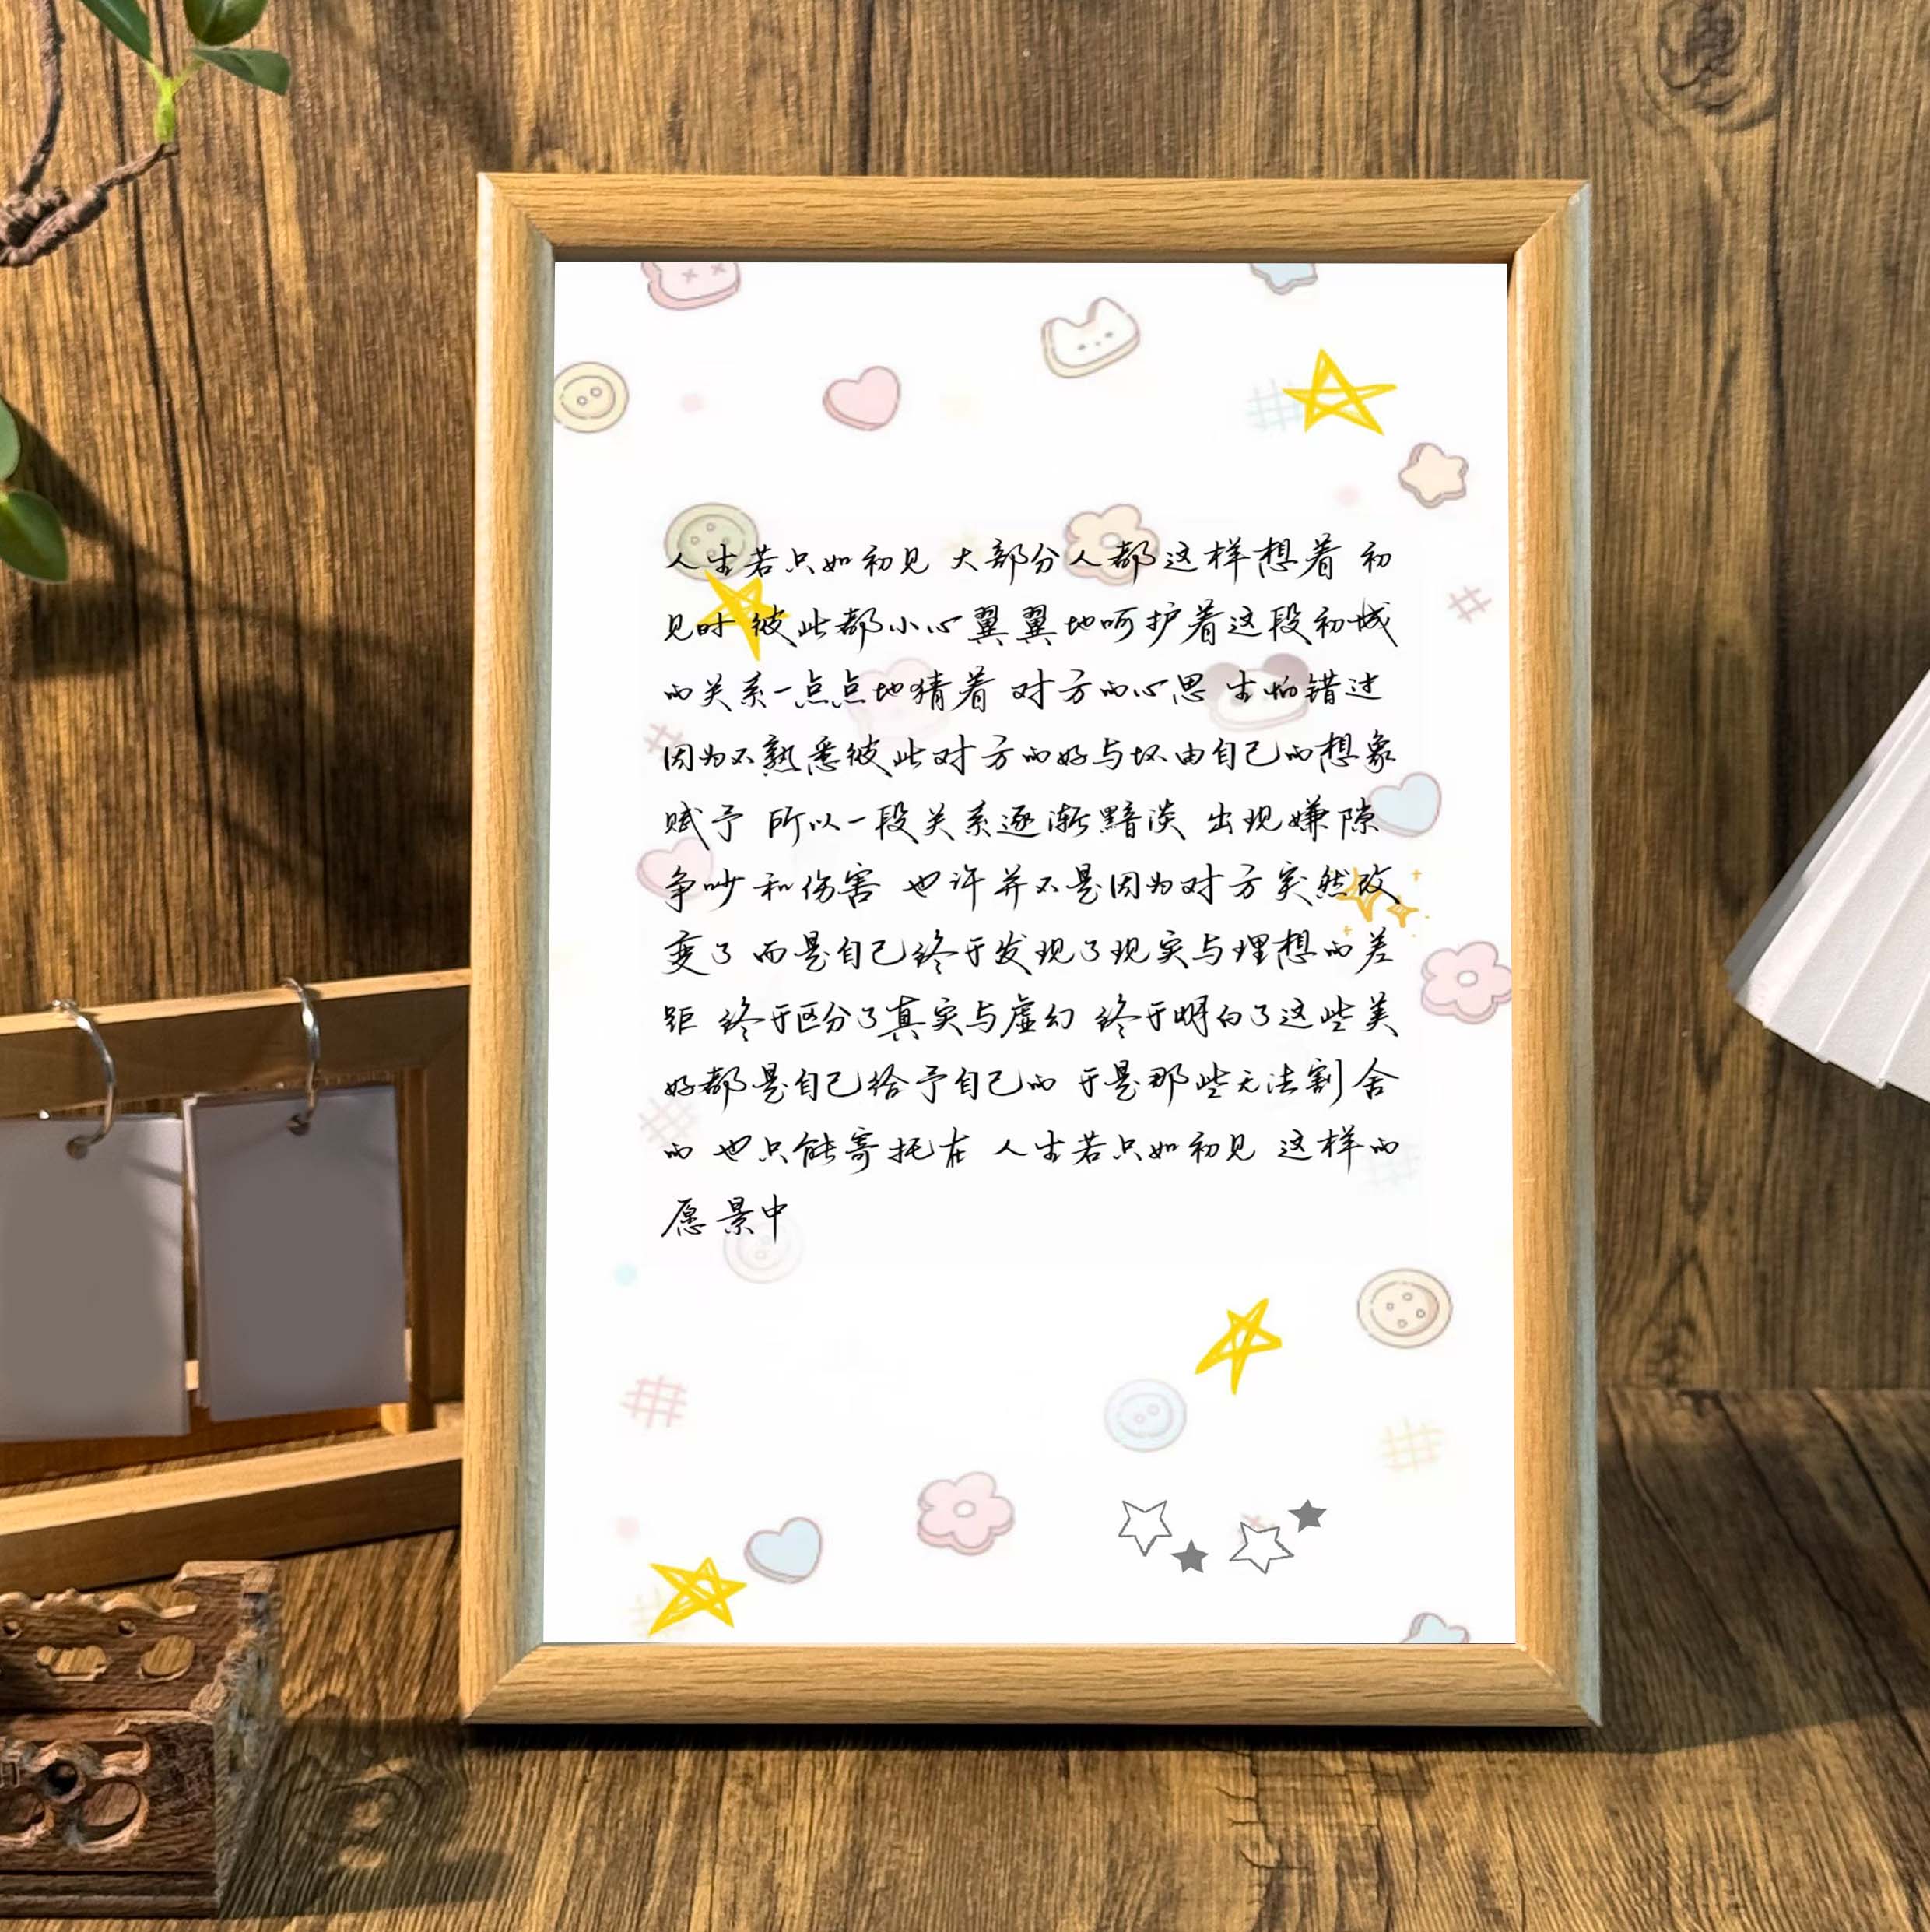 人生若只如初见 大部分人都这样想着 初
见时 彼此都小心翼翼地呵护着这段初城
的关系一点点地猜着 对方的心思 生怕错过
因为不熟悉彼此对方的好与坏由自己的想象
赋予 所以一段关系逐渐黯淡 出现嫌隙
争吵和伤害 也许并不是因为对方突然改
变了 而是自己终于发现了现实与理想的差
距 终于区分了真实与虚幻 终于明白了这些美
好都是自己给予自己的 于是那些无法割舍
的 也只能寄托在 人生若只如初见 这样的
愿景中